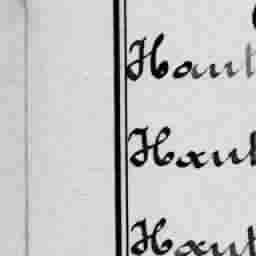 Haut
Haut
Haut